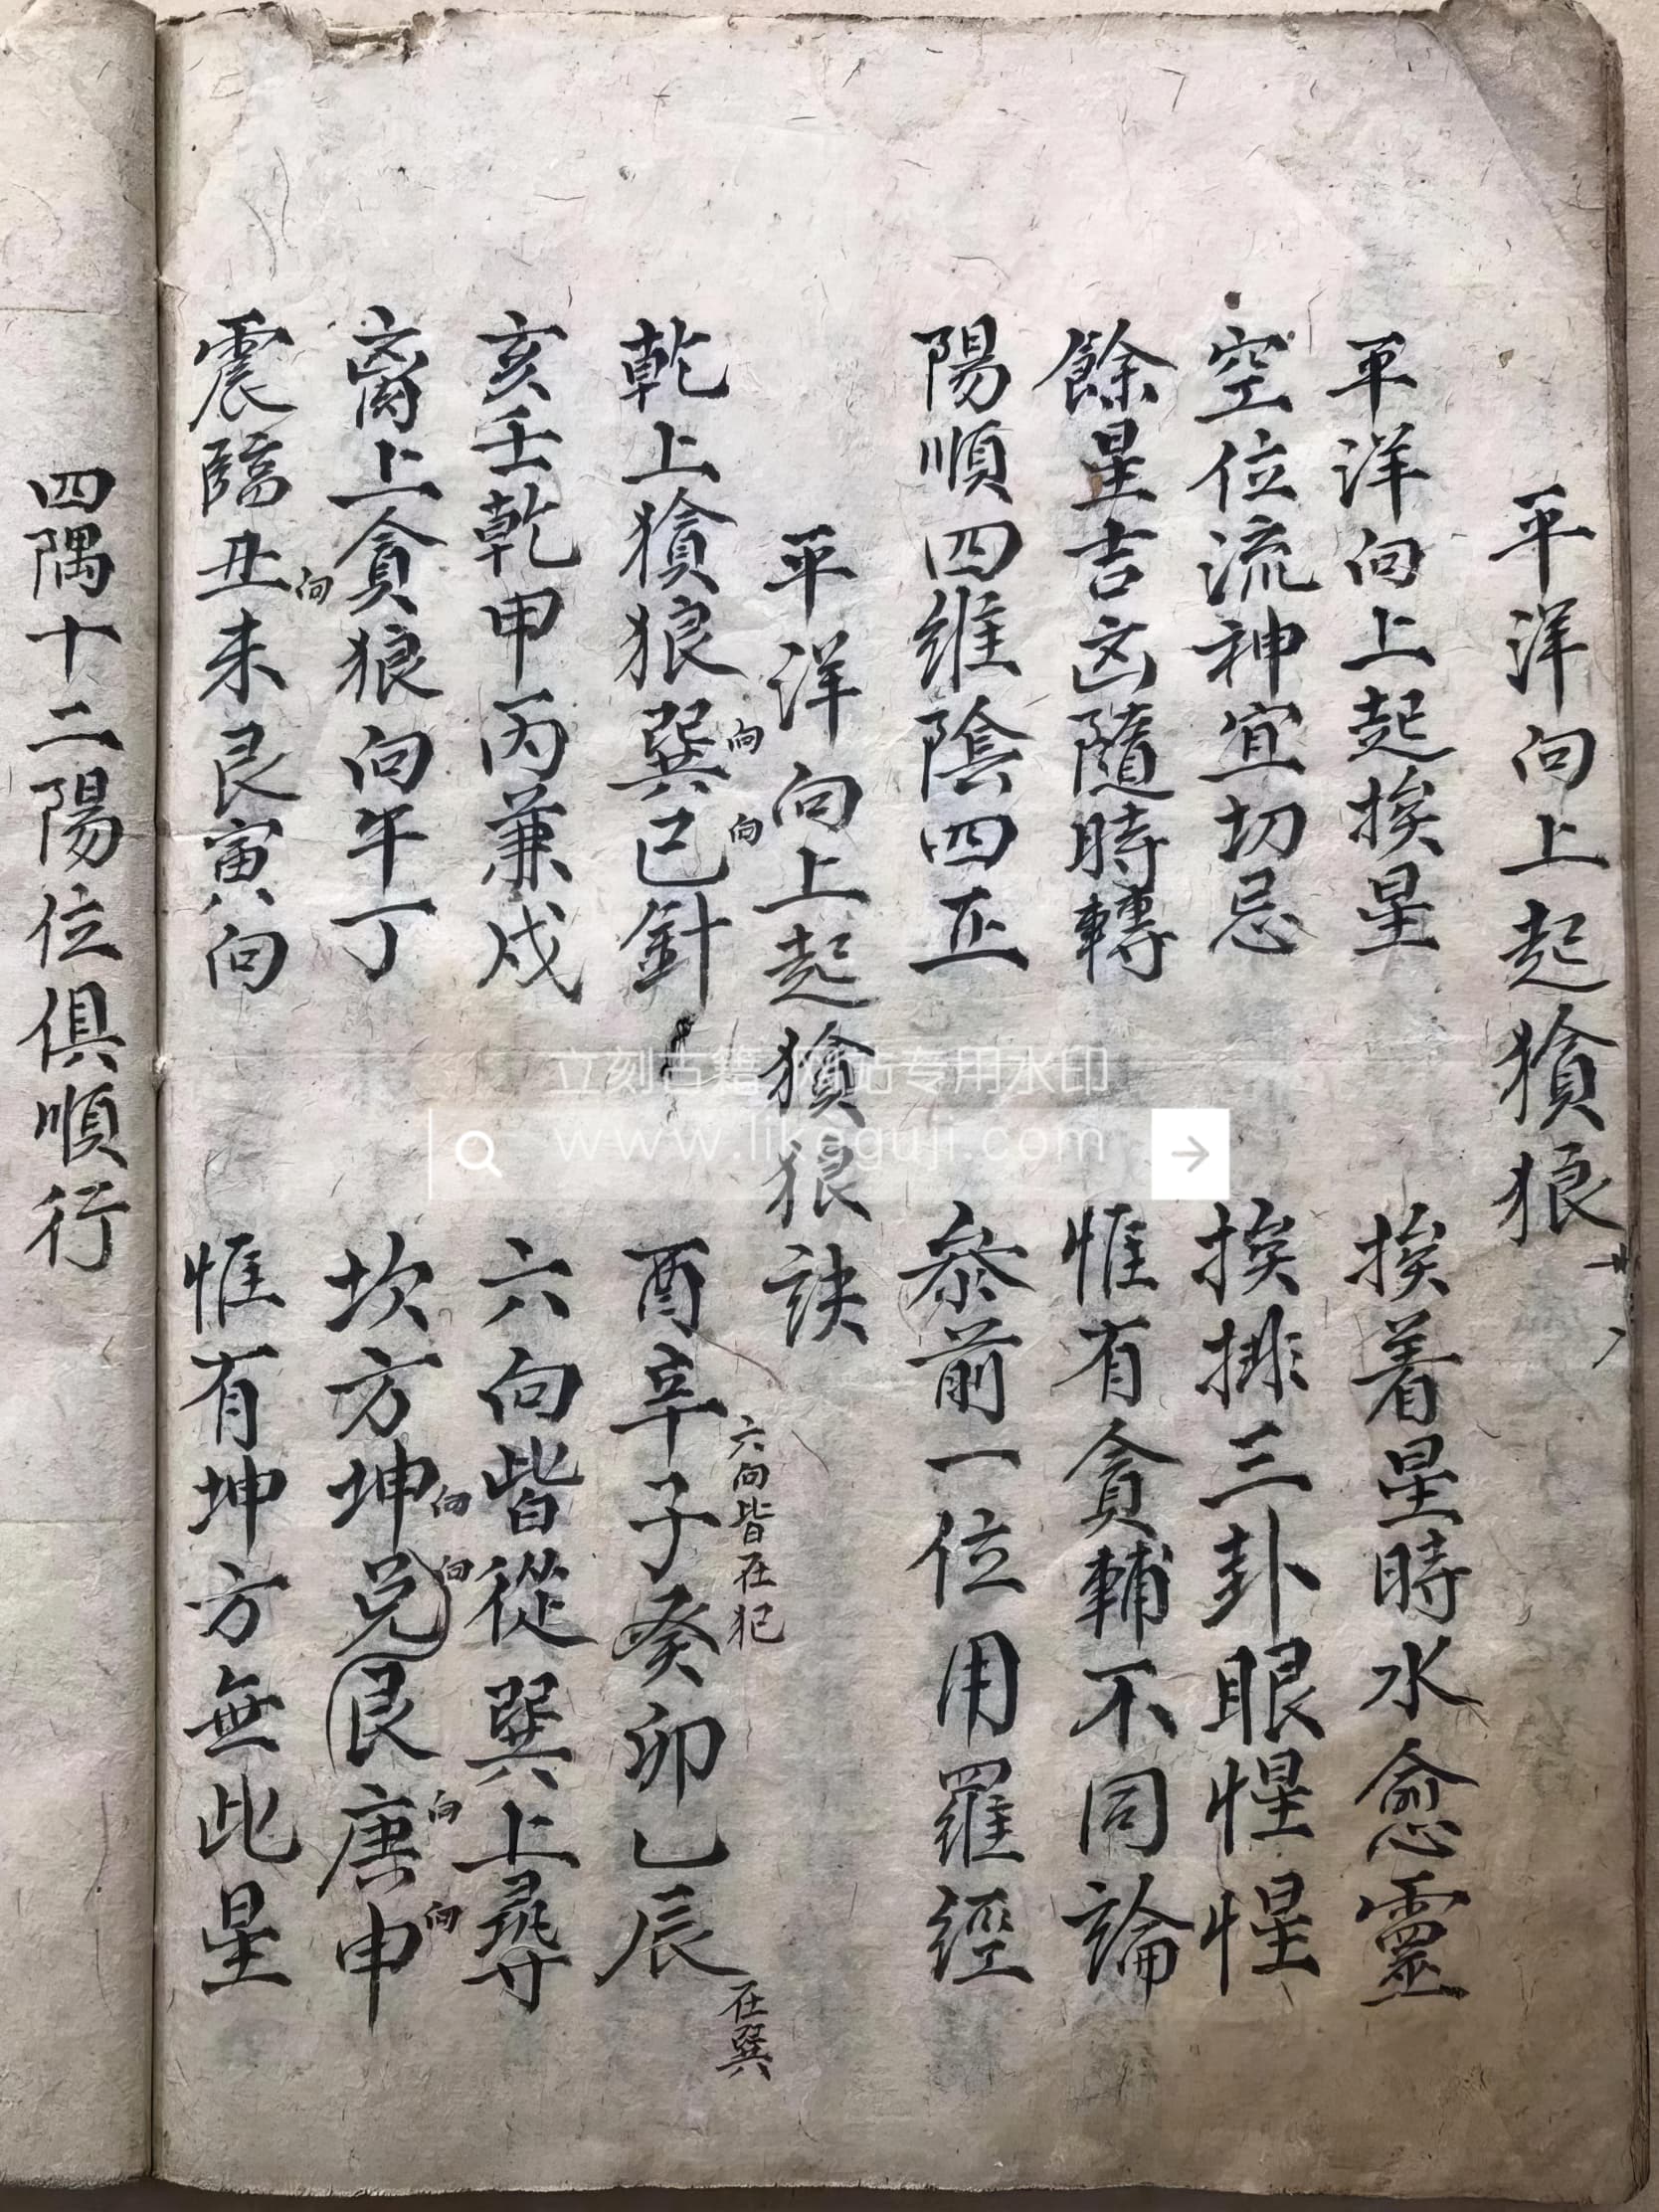 平洋向上起獱狼
平洋向上起挨星 挨着星時水愈靈
空位流神宜切忌 挨排三卦眼惺惺
餘星吉凶隨時轉 惟有貪輔不同論
陽順四維陰四正 叅前一位用羅經
平洋向上起獱狼訣
乾上獱狼巽向巳向針 酉辛子癸卯乙辰在巽
六向皆在犯
亥壬乾甲丙兼戌 六向皆從巽上尋
离上貪狼向午丁 坎方坤向兑向艮庚向申向
震臨丑向未艮寅向 惟有坤方無此星
四隅十二陽位俱順行
立刻古籍 网站专用水印
www.likeguji.com